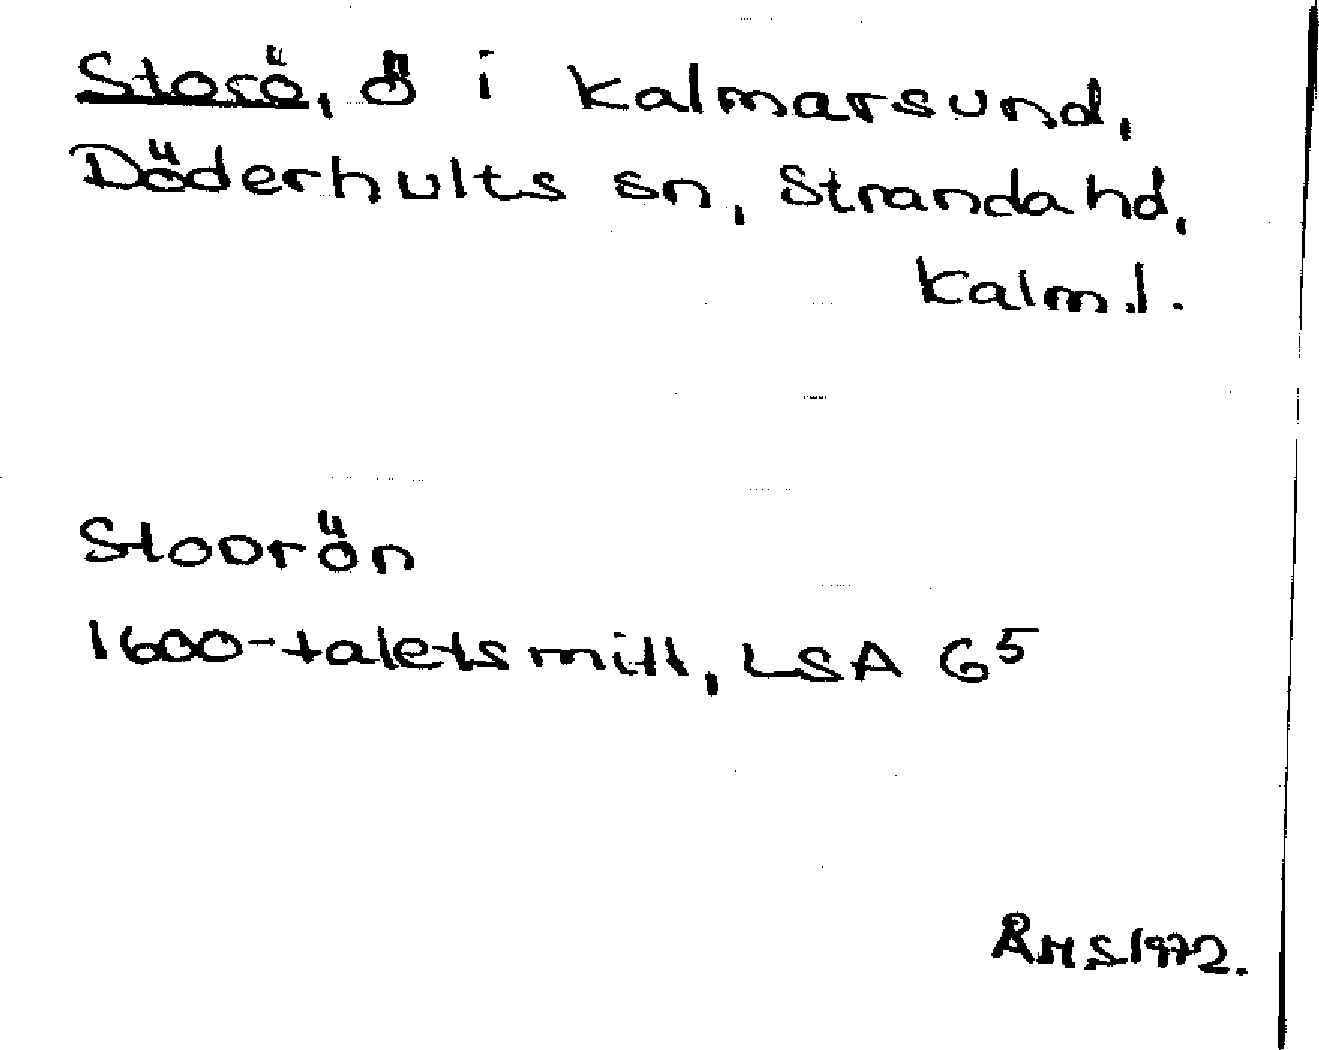 Storö, ö i Kalmarsund,
Döderhults sn, Stranda hd,
Kalm.l.
Stoorön
1600-talets mitt, LSA G5
ÅHS 1972.